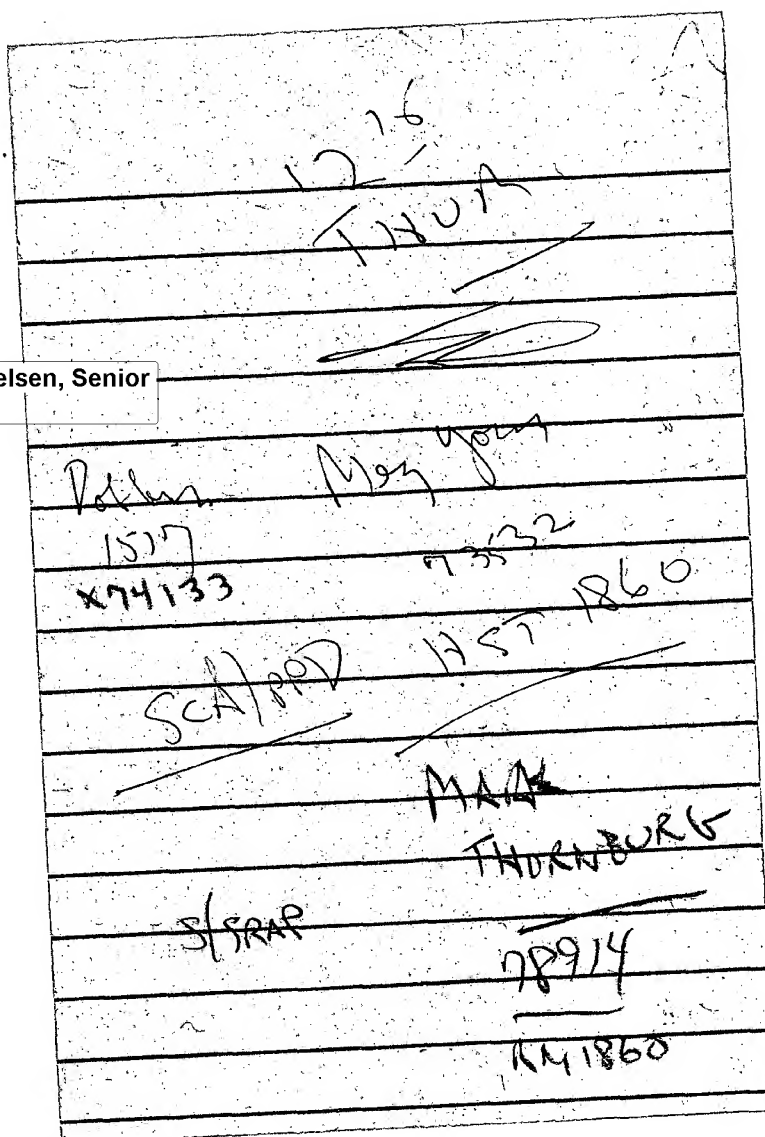 12/16
THUR
elsen, Senior
Meg Young
1517 73532
x74133
HST 1860
MARK
THORNBURG
S/SRAP
78914
RM 1860